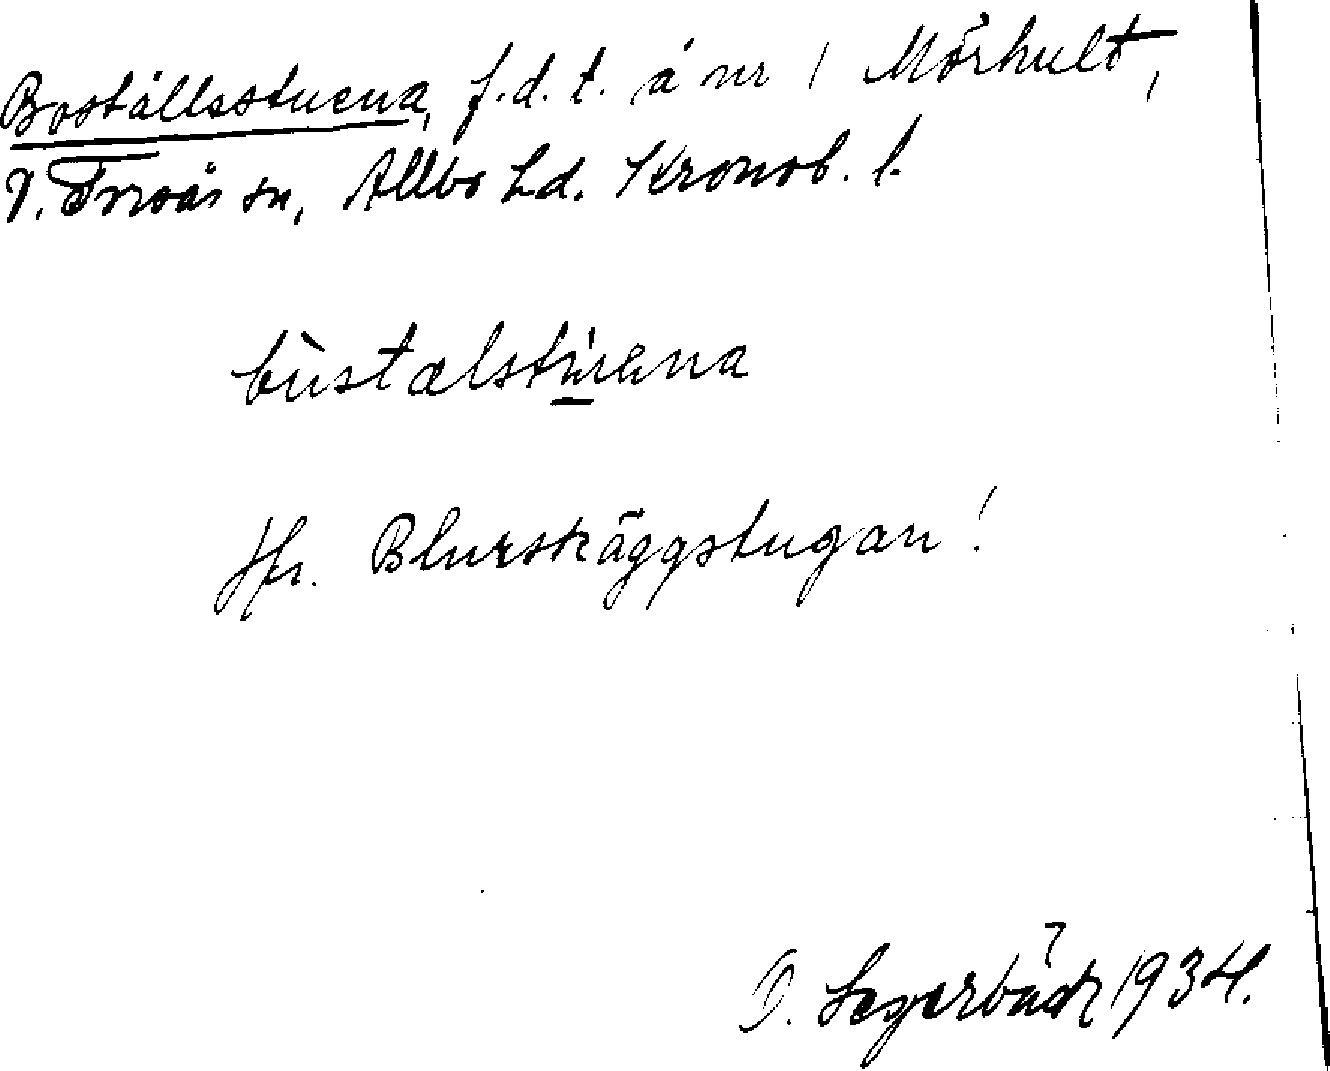 Boställsstuena, f.d.t. å nr 1 Mörhult,
V. Torsås sn, Allbo hd. Kronob. l.
bùstalstùena
Jfr. Blurskäggstugan!
D. Segerbäck 1934.